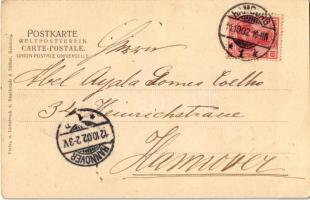 POSTKARTE
WELTPOSTVEREIN
CARTE-POSTALE
UNION POSTALE UNIVERSELLE
HAMBURG
11.10.02
* 1 *
Abel Ayala Gomes Coelho
34 Heinrichstrasse
Hannover
HANNOVER
12.10.02.2-3V
* 1